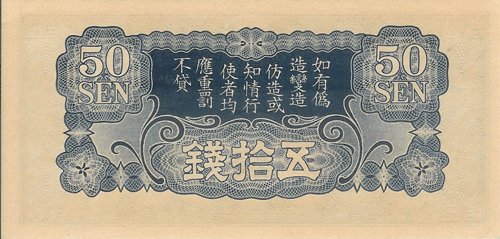 50
SEN
50
SEN
如有僞
造變造
仿造或
知情行
使者均
應重罰
不貸
五拾錢